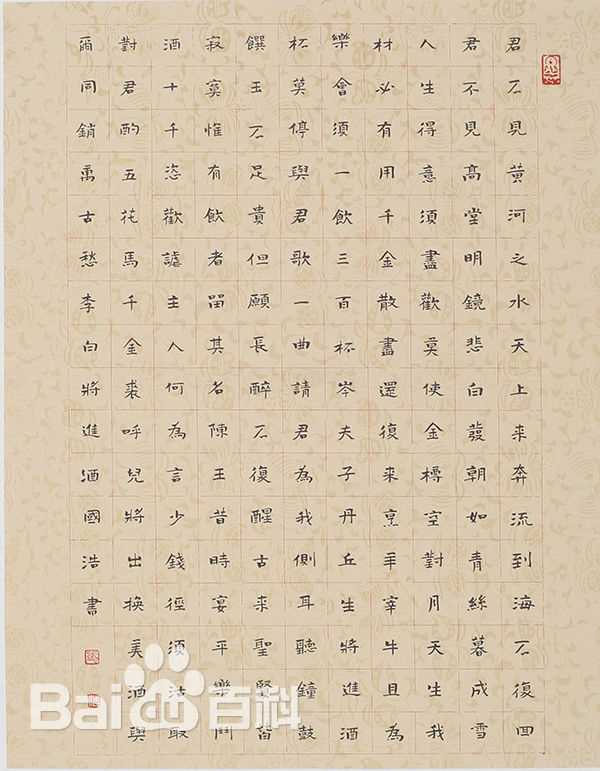 君不見黃河之水天上來奔流到海不復回
君不見高堂明鏡悲白發朝如青絲暮成雪
人生得意須盡歡莫使金樽空對月天生我
材必有用千金散盡還復來烹羊宰牛且為
樂會須一飲三百杯岑夫子丹丘生將進酒
杯莫停與君歌一曲請君為我側耳聽鐘鼓
饌玉不足貴但願長醉不復醒古來聖賢皆
寂寞惟有飲者留其名陳王昔時宴平樂鬥
酒十千恣歡謔主人何為言少錢徑須沽取
對君酌五花馬千金裘呼兒將出換美酒與
爾同銷萬古愁李白將進酒國浩書
Baidu百科